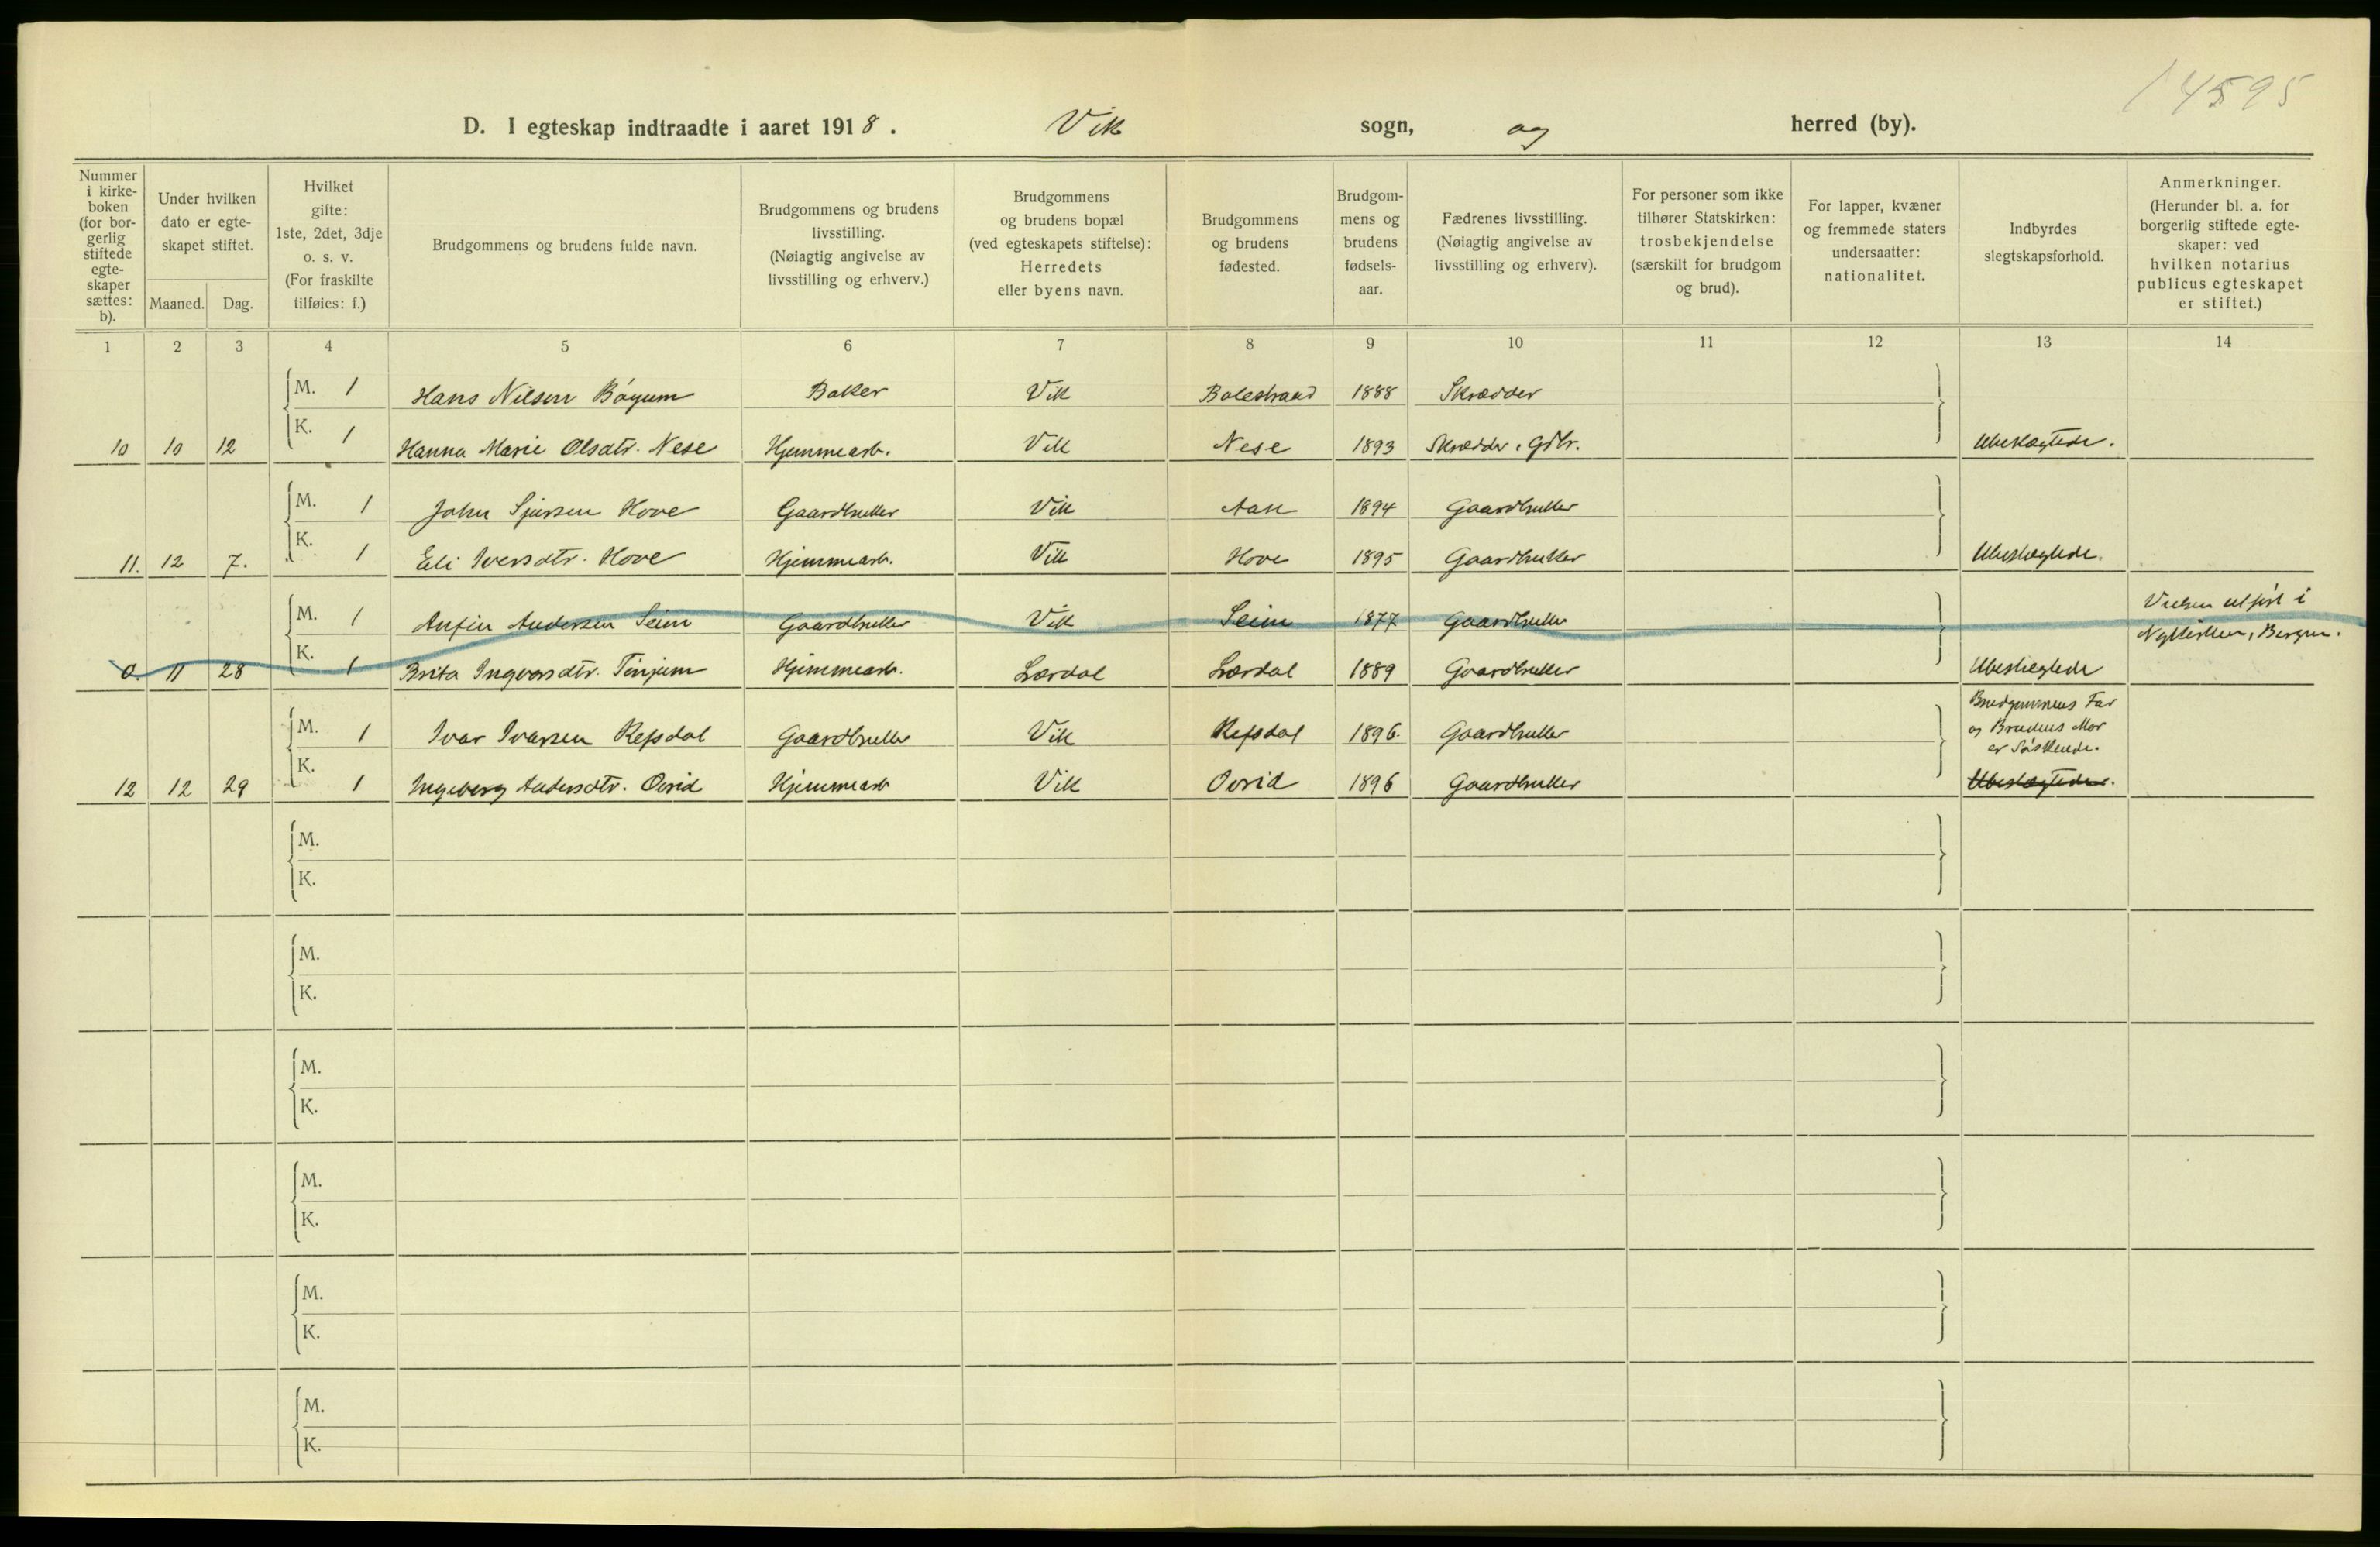 14595
D. I egteskap indtraadte i aaret 1918. Vik sogn, og herred (by).
Nummer i kirke-boken (for bor-gerlig stiftede egte-skaper sættes: b).
Under hvilken dato er egte-skapet stiftet.
Maaned. Dag.
Hvilket gifte: 1ste, 2det, 3dje o. s. v. (For fraskilte tilføies: f.)
Brudgommens og brudens fulde navn.
Brudgommens og brudens livsstilling. (Nøiagtig angivelse av livsstilling og erhverv.)
Brudgommens og brudens bopæl (ved egteskapets stiftelse): Herredets eller byens navn.
Brudgommens og brudens fødested.
Brudgom-mens og brudens fødsels-aar.
Fædrenes livsstilling. (Nøiagtig angivelse av livsstilling og erhverv).
For personer som ikke tilhører Statskirken: trosbekjendelse (særskilt for brudgom og brud).
For lapper, kvæner og fremmede staters undersaatter: nationalitet.
Indbyrdes slegtskapsforhold.
Anmerkninger. (Herunder bl. a. for borgerlig stiftede egte-skaper: ved hvilken notarius publicus egteskapet er stiftet.)
1 2 3 4 5 6 7 8 9 10 11 12 13 14
M. 1 Hans Nilsen Bøyum Baker Vik Balestrand 1888 Skrædder
10 10 12 K. 1 Hanna Marie Olsdtr. Nese Hjemmearb. Vik Nese 1893 Skrædder, Gdbr. Ubeslægtede.
M. 1 John Sjursen Hove Gaardbruker Vik 1894 Gaardbruker
11. 12 7. K. 1 Eli Iversdtr. Hove Hjemmearb. Vik Hove 1895 Gaardbruker Ubeslegtede.
M. 1 Anfin Andersen Seim Gaardbruker Vik Seim 1877 Gaardbruker Vielsen utført i
Nykirken, Bergen.
0. 11 28 K. 1 Brita Ingvarsdtr. Tinjum Hjemmearb. Lærdal Lærdal 1889 Gaardbruker Ubeslegtede
M. 1 Ivar Ivarsen Refsdal Gaardbruker Vik Refsdal 1896 Gaardbruker Brudgummens Far
og Brudens Mor
er Søskende.
12 12 29 K. 1 Ingeborg Andersdtr. Ovrid Hjemmearb Vik Ovrid 1896 Gaardbruker Ubeslægtede.
M.
K.
M.
K.
M.
K.
M.
K.
M.
K.
M.
K.